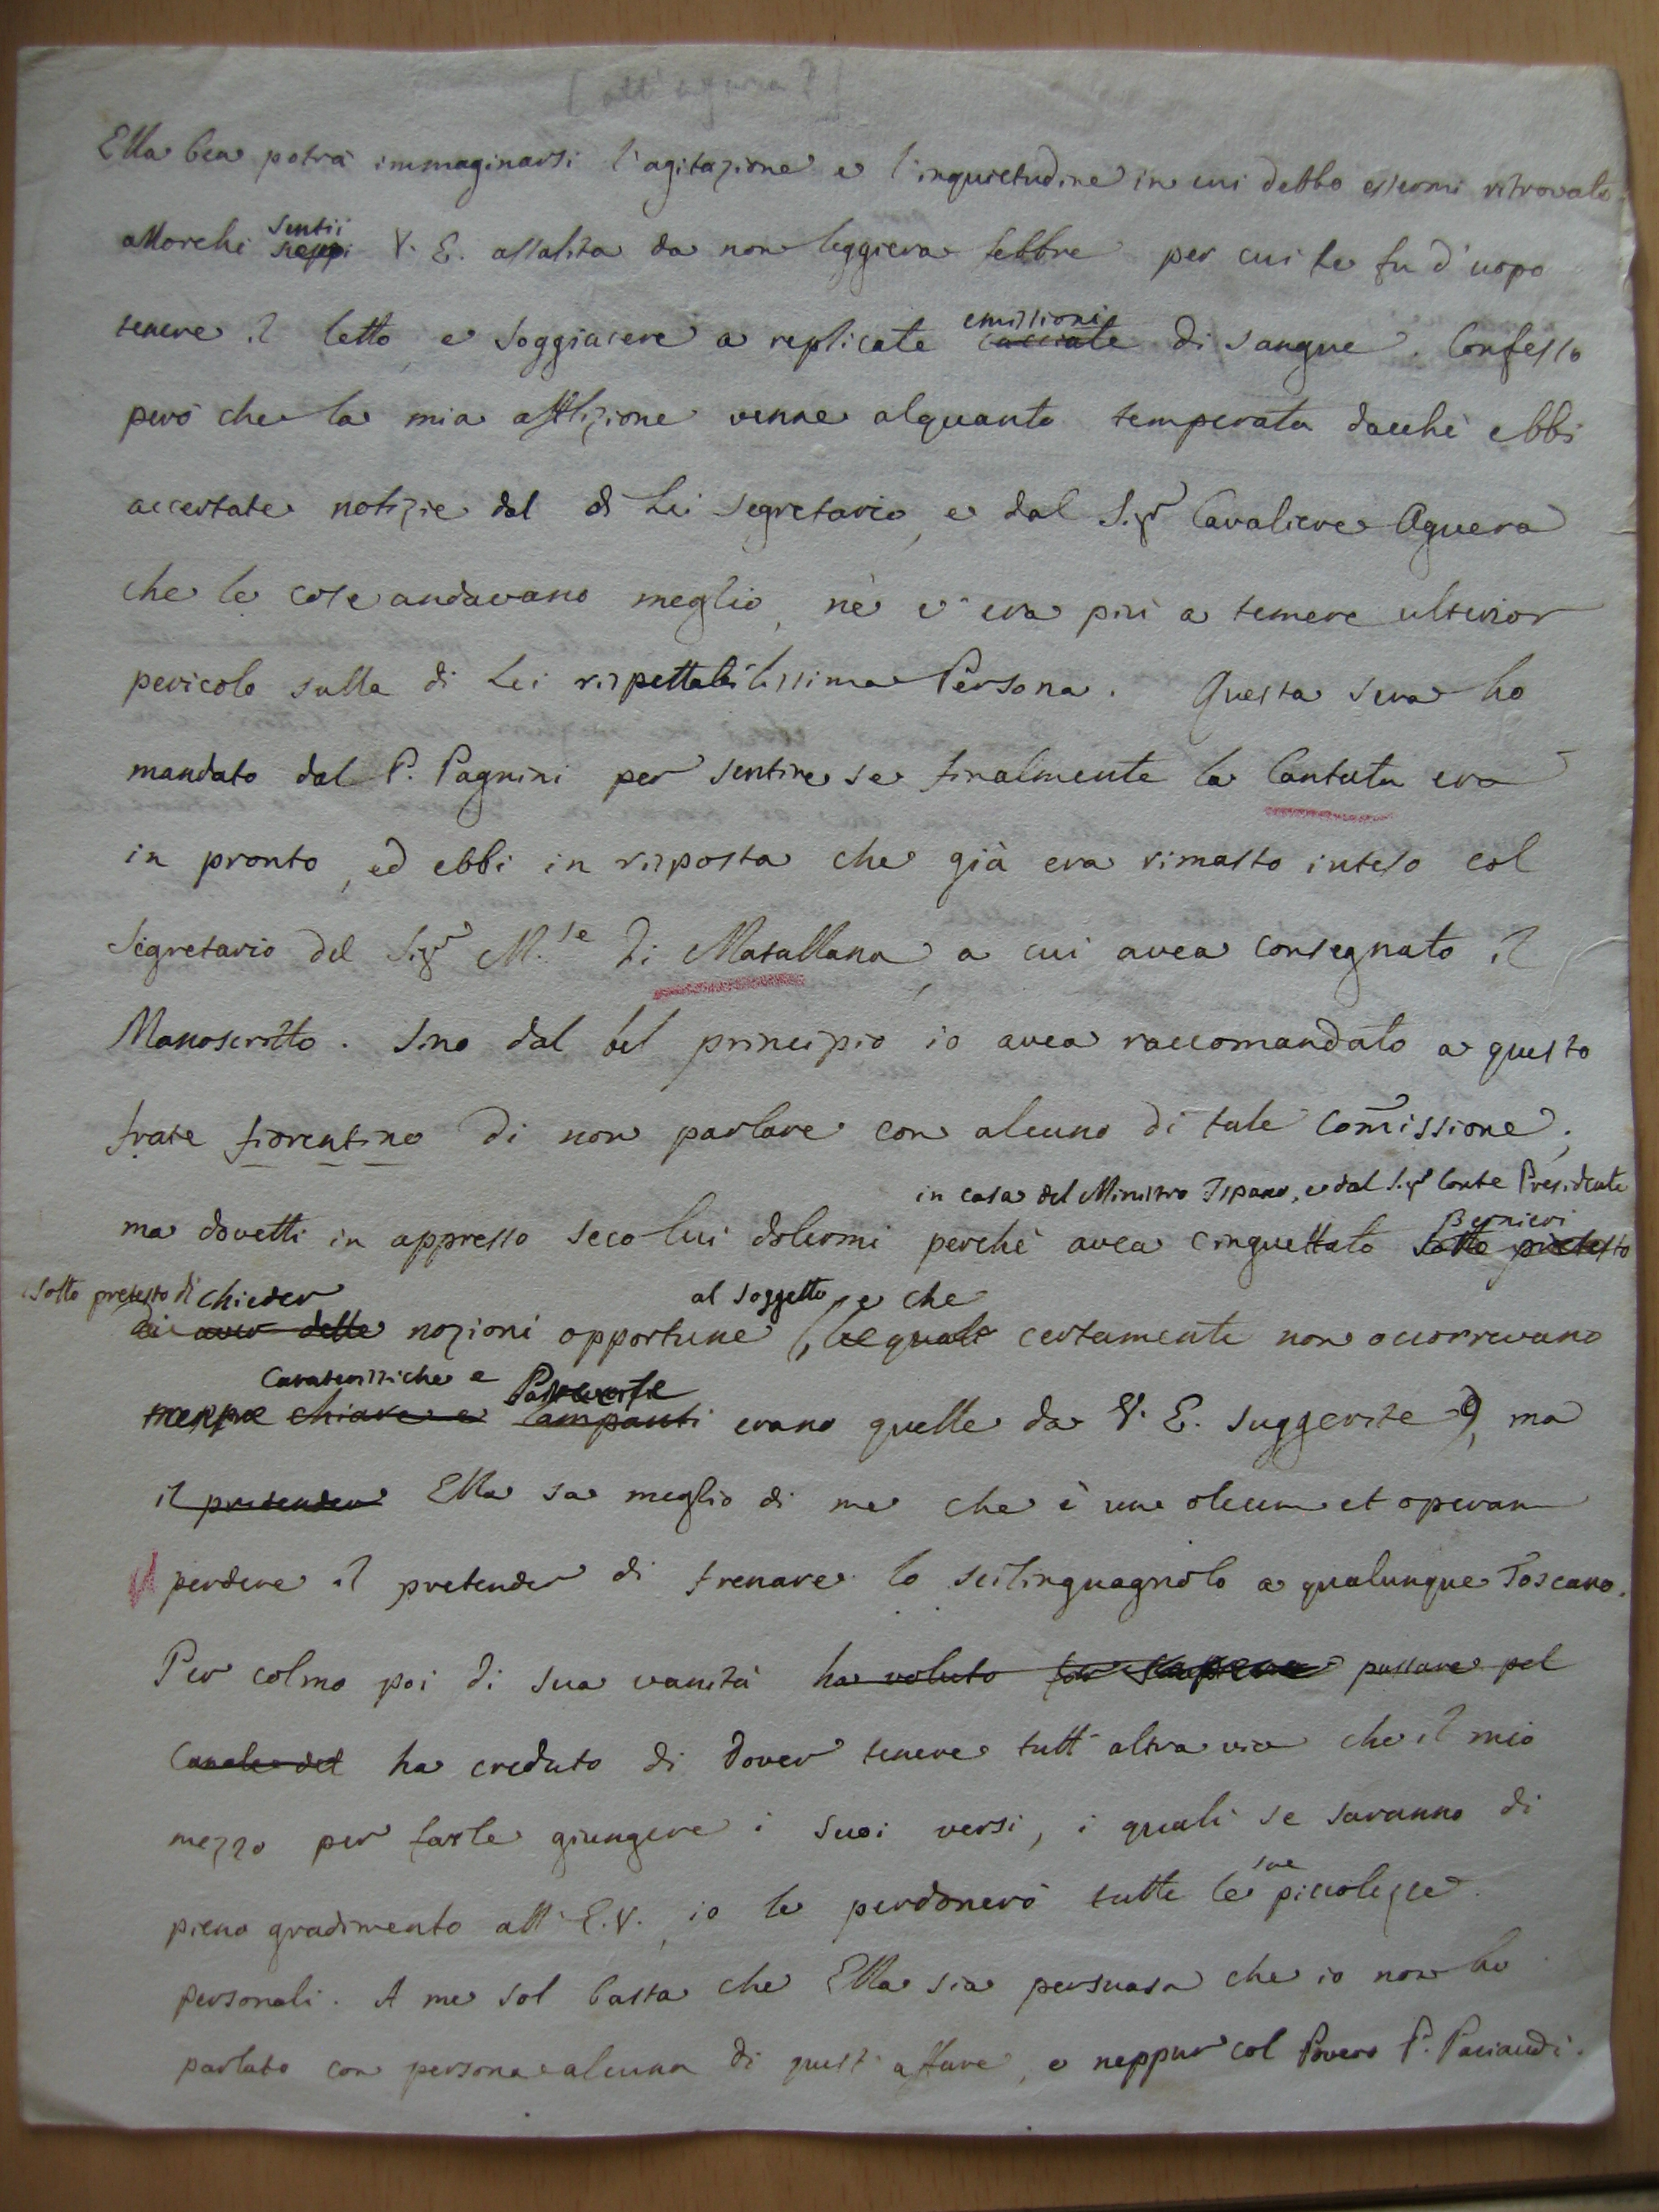 Ella ben potrà immaginarsi l'agitazione e l'inquietudine in cui debbo essermi ritrovato
sentii
allorchè seppi V. E. assalita da non leggiera febbre per cui le fu d'uopo
emissioni
tenere il letto, e soggiacere a replicate cacciate di sangue. Confesso
però che la mia afflizione venne alquanto temperata dacchè ebbi
accertate notizie dal di Lei Segretario, e dal Sigr Cavaliere Aguera
che le cose andavano meglio, nè v'era più a temere ulterior
pericolo sulla di Lei rispettabilissima Persona. Questa sera ho
mandato dal P. Pagnini per sentire se finalmente la Cantata era
in pronto, ed ebbi in risposta che già era rimasto inteso col
Segretario del Sigr M.se di Matallana, a cui avea consegnato il
Manoscritto. Sino dal bel principio io avea raccomandato a questo
frate fiorentino di non parlare con alcuno di tale Com̃issione;
in casa del Ministro Ispano, e dal Sigr Conte Presidente
Bernieri
ma dovetti in appresso seco lui dolermi perchè avea cinguettato sotto pretesto
sotto pretesto di chieder al soggetto, e che
di aver delle nozioni opportune (, le quali certamente non occorrevano
Caratteristiche e
chiare e lampanti erano quelle da V. E. suggerite), ma
il pretender Ella sa meglio di me che è un oleum et operam
perdere il pretender di frenare lo scilinguagnolo a qualunque Toscano.
Per colmo poi di sua vanità ha voluto far sapere passare pel
Canale del ha creduto di dover tenere tutt'altra via che il mio
mezzo per farle giungere i suoi versi, i quali se saranno di
sue
pieno gradimento all'E.V., io le perdonerò tutte le piccolezze
personali. A me sol basta che Ella sia persuasa che io non ho
parlato con persona alcuna di quest'affare, e neppur col Povero P. Paciaudi.